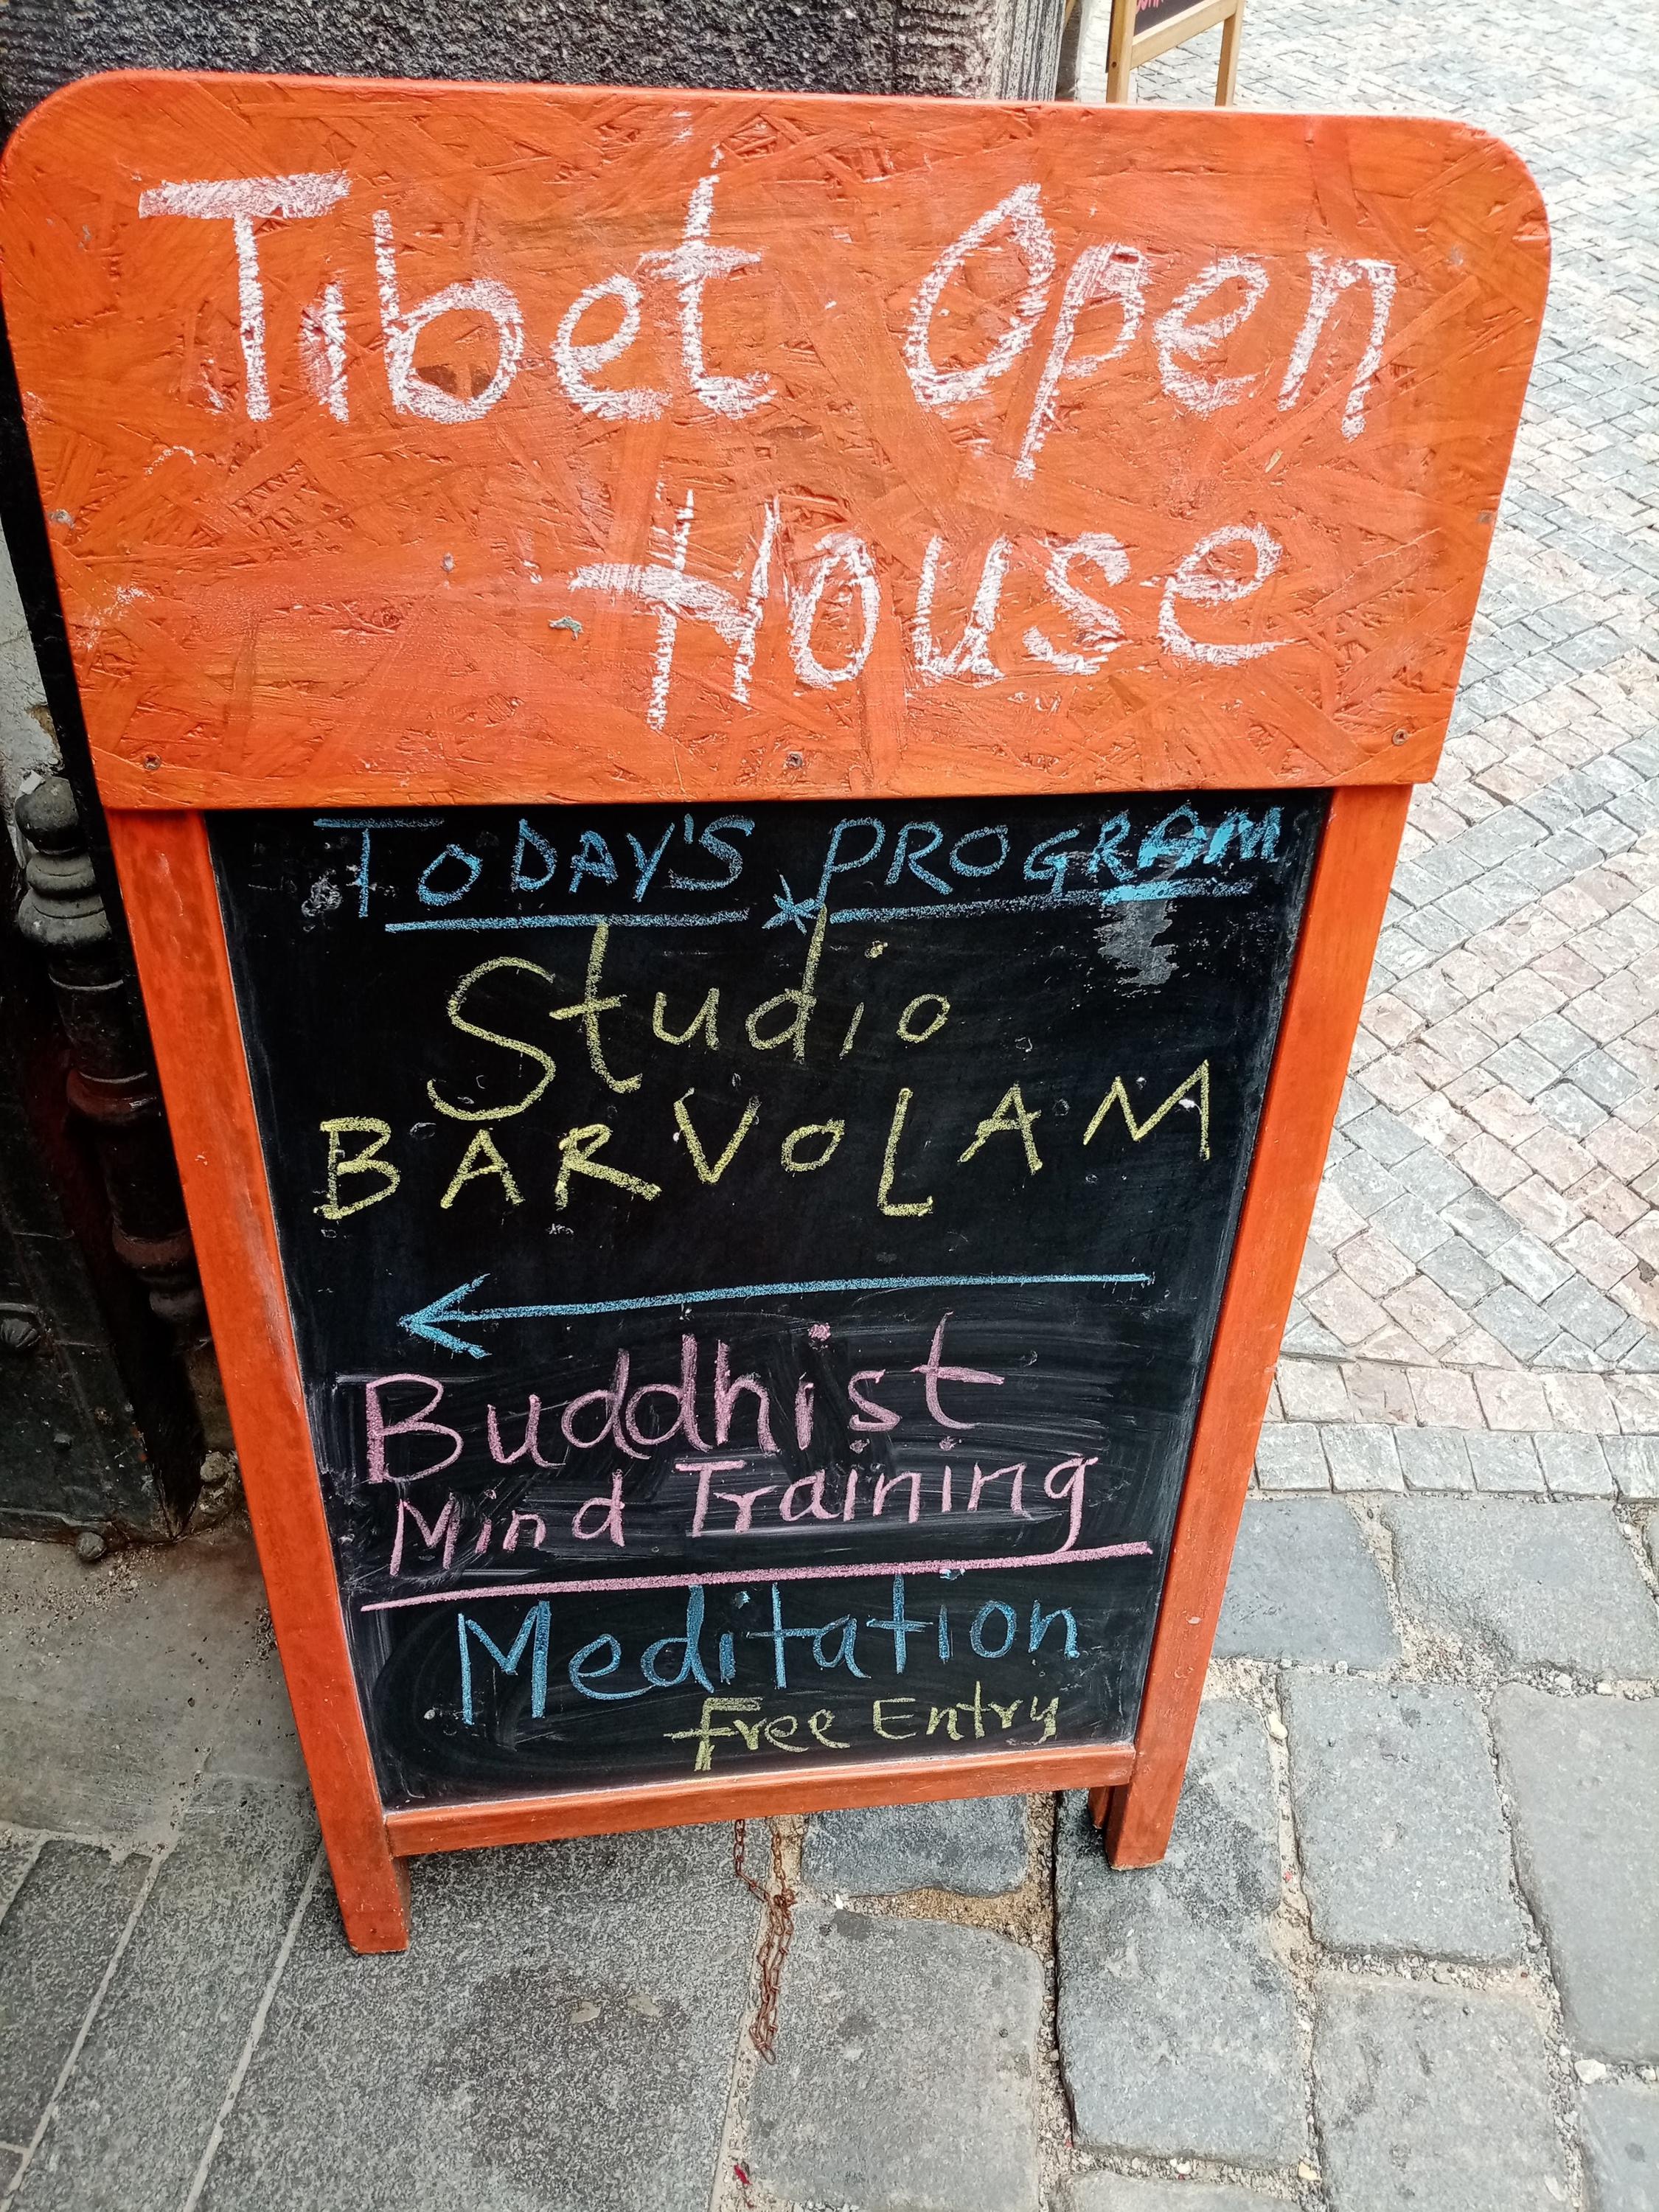 Tibet Open
House
TODAY'S PROGRAM
Studio
BARVOLAM
Buddhist
Mind Training
Meditation
Free Entry